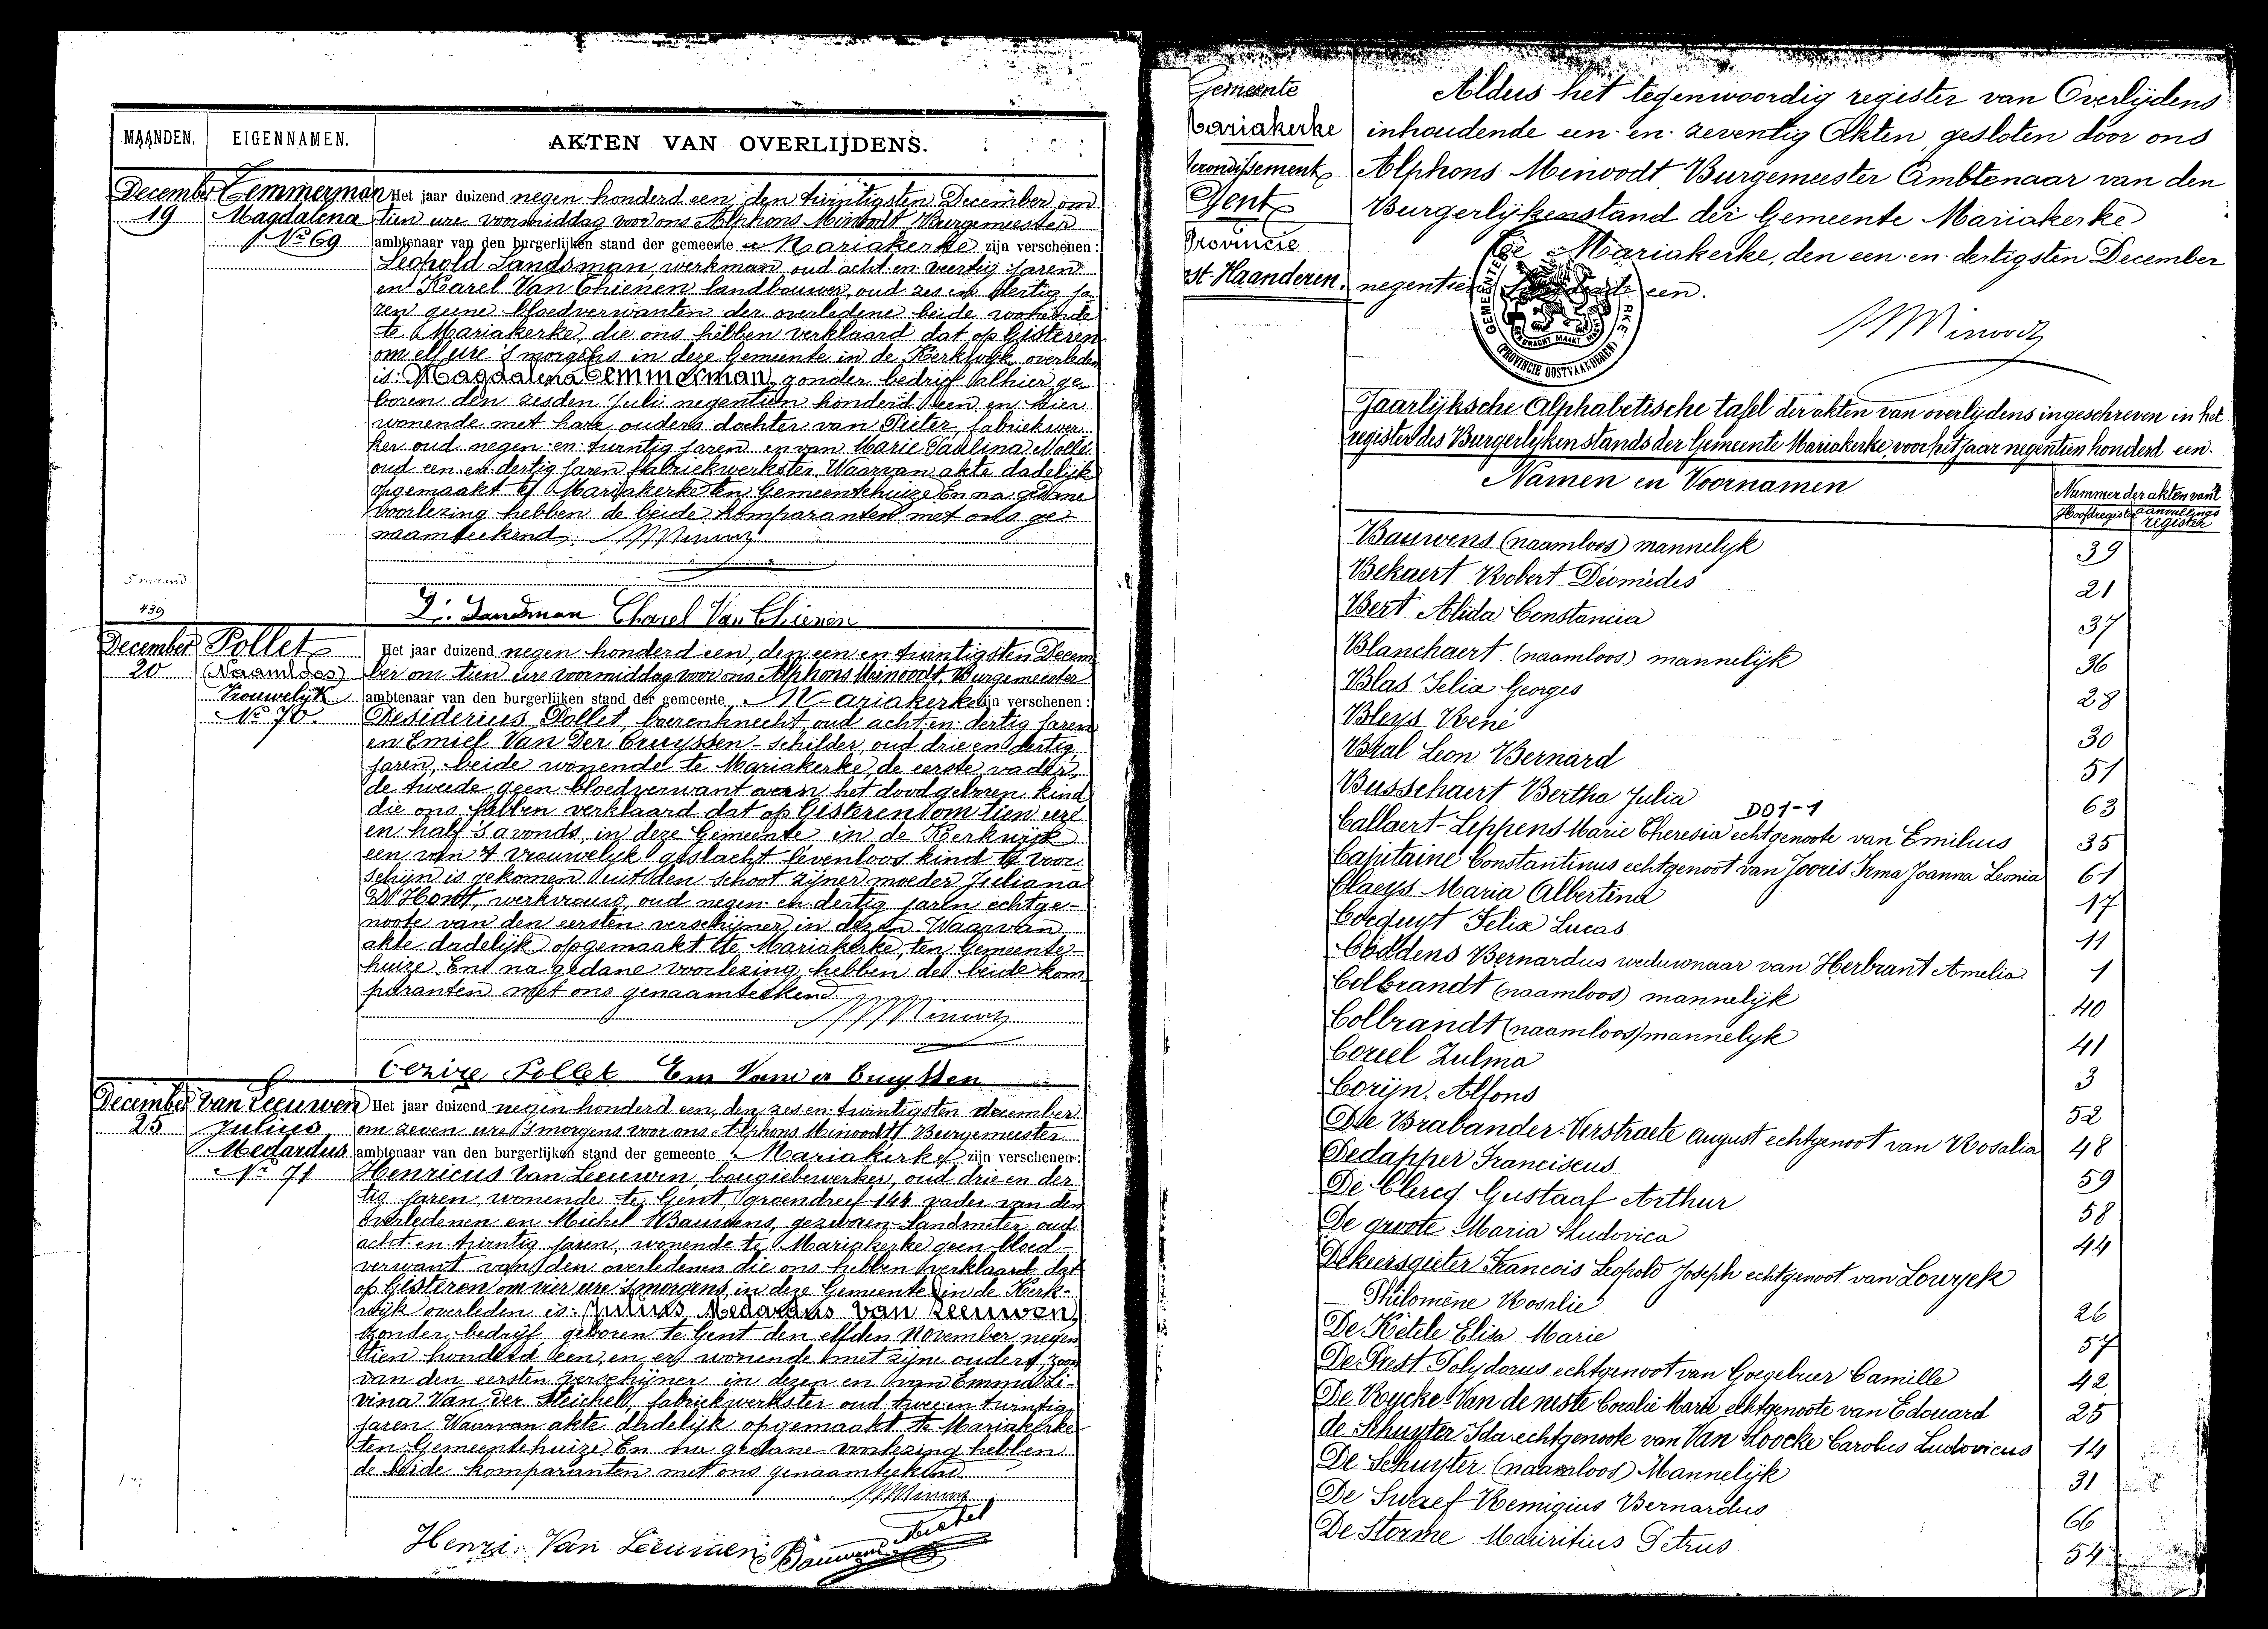 MAANDEN. EIGENNAMEN. AKTEN VAN OVERLIJDENS.
December
19
Temmerman
Magdalena
Nr 69
Het jaar duizend negen honderd een, den twintigsten December om
tien ure voormiddag voor ons Alphons Minoodt Burgemeester
ambtenaar van den burgerlijken stand der gemeente Mariakerke zijn verschenen:
Leopold Landsman, werkman oud acht en veertig jaren
en Karel Van Thienen landbouwer, oud zes en dertig ja-
ren geene bloedverwanten der overledene beide woonende
te Mariakerke, die ons hebben verklaard dat op Gisteren
om elf ure 's morgens in deze Gemeente in de Kerkwijk overleden
is: Magdalena Temmerman, zonder bedrijf alhier ge-
boren den zesden Juli negentien honderd een en hier
wonende met hare ouders dochter van Pieter, fabriekwer-
ker oud negen en twintig jaren en van Marie Paulina Nolle
oud een en dertig jaren fabriekwerkster. Waarvan akte dadelijk
opgemaakt te Mariakerke ten Gemeentehuize En na gedane
voorlezing hebben de beide komparanten met ons ge-
naamteekend.
5 maand.
439
L. Landsman Charel Van Thienen
December
20
Pollet
(Naamloos)
Vrouwelijk
No 70.
Het jaar duizend negen honderd een, den een en twintigsten Decem-
ber om tien ure voormiddag voor ons Alphons Minoodt, Burgemeester
ambtenaar van den burgerlijken stand der gemeente Mariakerke zijn verschenen:
Desiderius Pollet, boerenknecht, oud acht en dertig jaren
en Emiel Van Der Cruyssen - schilder, oud drie en dertig
jaren, beide wonende te Mariakerke, de eerste vader,
de tweede geen bloedverwant van het doodgeboren kind
die ons hebben verklaard dat op Gisteren om tien ure
en half 's avonds, in deze Gemeente in de Kerkwijk
een van 't vrouwelijk geslacht levenloos kind te voor-
schijn is gekomen uit den schoot zijner moeder Juliana
D'Hont, werkvrouw, oud negen en dertig jaren echtge-
noote van den eersten verschijner in dezen. Waarvan
akte dadelijk opgemaakt te Mariakerke, ten Gemeente-
huize. En na gedane voorlezing hebben de beide kom-
paranten met ons genaamteekend.
Pollet Em Van der Cruyssen
December
25
Van Leeuwen
Julius
Medardus
Nr 71
Het jaar duizend negen honderd een, den zes en twintigsten december
om zeven ure 's morgens voor ons Alphons Minoodt Burgemeester
ambtenaar van den burgerlijken stand der gemeente Mariakerke zijn verschenen:
Henricus Van Leeuwen, bougiebewerker, oud drie en der-
tig jaren, wonende te Gent, groendreef 144 vader van den
overledenen en Michel Bauwens, gezworen Landmeter oud
acht en twintig jaren, wonende te Mariakerke geen bloed-
verwant van den overledenen die ons hebben verklaard dat
op Gisteren om vier ure 's morgens, in deze Gemeente in de Kerk-
wijk overleden is: Julius Medardus Van Leeuwen,
zonder bedrijf geboren te Gent den elfden November negen
tien honderd een, en er wonende met zijne ouders, zoon
van den eersten verschijner in dezen en van Emma Li-
vina Van Der Steichel, fabriekwerkster oud twee en twintig
jaren. Waarvan akte dadelijk opgemaakt te Mariakerke
ten Gemeentehuize. En na gedane voorlezing hebben
de beide komparanten met ons genaamteekend
Henri Van Leeuwen Bauwens Michel
Gemeente
Mariakerke
Arrondissement
Gent
Provincie
Ost-Vlaanderen.
Aldus het tegenwoordig register van Overlijdens
inhoudende een en zeventig Akten, gesloten door ons
Alphons Minoodt Burgemeester Ambtenaar van den
Burgerlijkenstand der Gemeente Mariakerke
Te Mariakerke, den een en dertigsten December
negentien honderd een.
EENDRACHT MAAKT MACHT
(PROVINCIE OOSTVLAANDEREN)
Jaarlijksche Alphabetische tafel der akten van overlijdens ingeschreven in het
register des Burgerlijken stands der Gemeente Mariakerke, voor het jaar negentien honderd een.
Namen en Voornamen
Nummer der akten van 't
Hoofdregister aanvullings register
Bauwens (naamloos) mannelijk 39
Bekaert Robert Diomèdes 21
Bert Alida Constancia 37
Blanchaert (naamloos) mannelijk 36
Blas Felix Georges 28
Bleys René 30
Bral Leon Bernard 51
Busschaert Bertha Julia 63
DO1-1
Callaert-Leppens Marie Theresia echtgenoote van Emilius 35
Capitaine Constantinus echtgenoot van Jooris Irma Joanna Leonia 61
Claeys Maria Albertina 17
Cocquyt Felix Lucas 11
Coddens Bernardus weduwnaar van Herbrant Amelia 1
Colbrandt (naamloos) mannelijk 40
Colbrandt (naamloos) mannelyk 41
Coreel Zulma 3
Corijn Alfons 52
De Brabander-Verstraete August echtgenoot van Rosalia 48
Dedapper Franciscus 59
De Clercq Gustaaf Arthur 58
De groote Maria Ludovica 44
Dekeersgieter Francois Leopold Joseph echtgenoot van Lowyck
Philomène Rosalie 26
De Ketele Elisa Marie 57
De Prest Polydorus echtgenoot van Goegebuer Camille 42
De Rycke-Van de neste Coralie Marie echtgenoote van Edouard 25
de Schuyter Ida echtgenoote van Van Hoocke Carolus Ludovicus 14
De Schuyter (naamloos) Mannelijk 31
De Swaef Remigius Bernardus 66
De Storme Mauritius Petrus 54